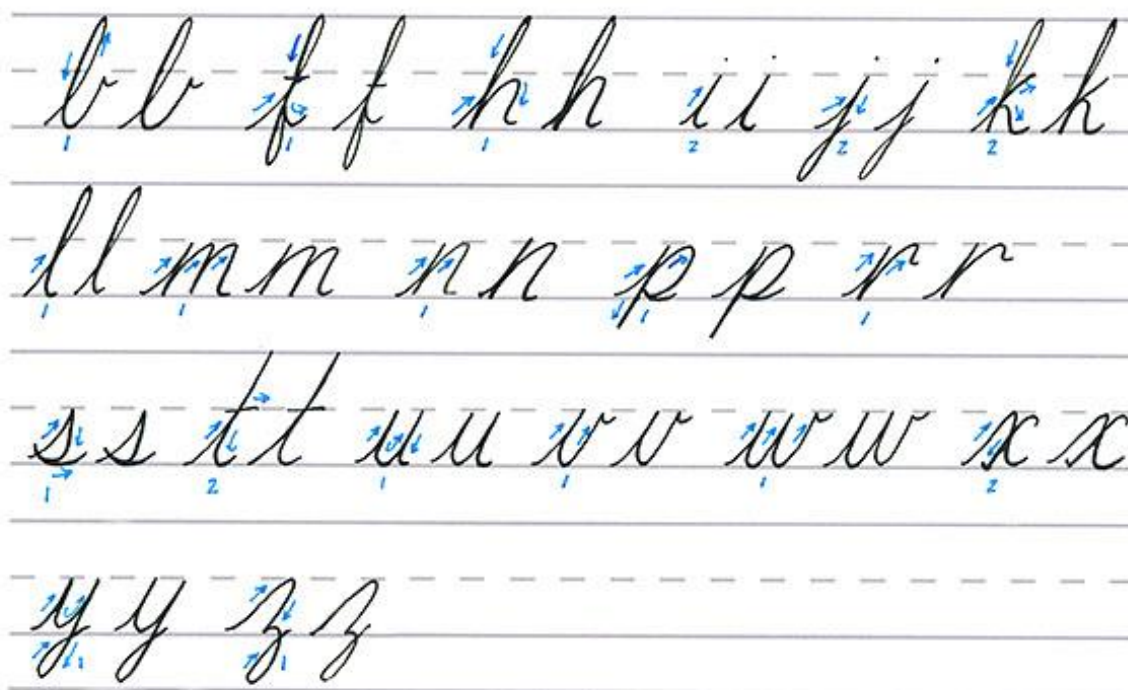 b b f f h h i i j j k k
1 1 1 2 2 2
l l m m n n p p r r
1 1 1 1 1
s s t t u u v v w w x x
1 2 1 1 1 2
y y z z
1 1